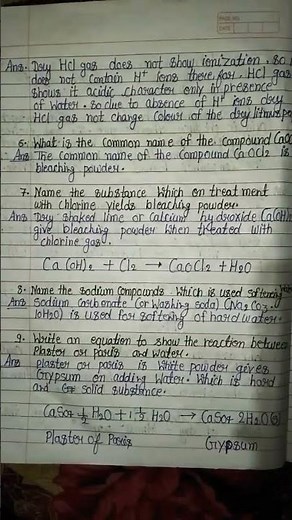 PAGE NO.
DATE
Ans. Dry HCl gas does not show ionization. so
does not contain H⁺ ions therefor. HCl gas
shows it acidic character only in presence
of water. so due to absence of H⁺ ions dry
HCl gas not change colour of the dry litmus
6. What is the common name of the compound CaOCl
Ans The common name of the compound CaOCl2 is
bleaching powder.
7. Name the substance which on treatment
with chlorine yields bleaching powder.
Ans Dry slaked lime or Calcium hydroxide Ca(OH)
give bleaching powder when treated with
chlorine gas.
Ca(OH)₂ + Cl₂ → CaOCl₂ + H₂O
8. Name the sodium compounds which is used softening
Ans Sodium carbonate (or washing soda) (Na₂CO₃.
10H₂O) is used for softening of hard water.
9. Write an equation to show the reaction between
Plaster or paris and water.
Ans plaster or paris is white powder gives
Gypsum on adding water. which is hard
and solid substance.
CaSO₄ ½ H₂O + 1½ H₂O → CaSO₄ 2H₂O(s)
Plaster of Paris Gypsum